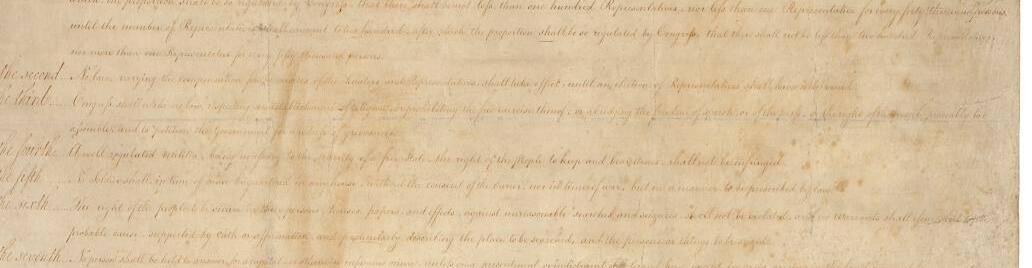 which the proportion shall be so regulated by Congress, that there shall be not less than one hundred Representatives, nor less than one Representative for every forty thousand persons,
until the number of Representatives shall amount to two hundred; after which the proportion shall be so regulated by Congress, that there shall not be less than two hundred Representatives,
nor more than one Representative for every fifty thousand persons.
the second No law, varying the compensation for the services of the Senators and Representatives, shall take effect, until an election of Representatives shall have intervened.
the third Congress shall make no law respecting an establishment of religion, or prohibiting the free exercise thereof; or abridging the freedom of speech, or of the press; or the right of the people peaceably to
assemble, and to petition the Government for a redress of grievances.
the fourth A well regulated militia, being necessary to the security of a free State, the right of the people to keep and bear arms, shall not be infringed.
the fifth No Soldier shall, in time of peace be quartered in any house, without the consent of the owner, nor in time of war, but in a manner to be prescribed by law.
the sixth The right of the people to be secure in their persons, houses, papers, and effects, against unreasonable searches and seizures, shall not be violated, and no warrants shall issue, but upon
probable cause, supported by oath or affirmation, and particularly describing the place to be searched, and the persons or things to be seized.
the seventh No person shall be held to answer for a capital, or otherwise infamous crime, unless on a presentment or indictment of